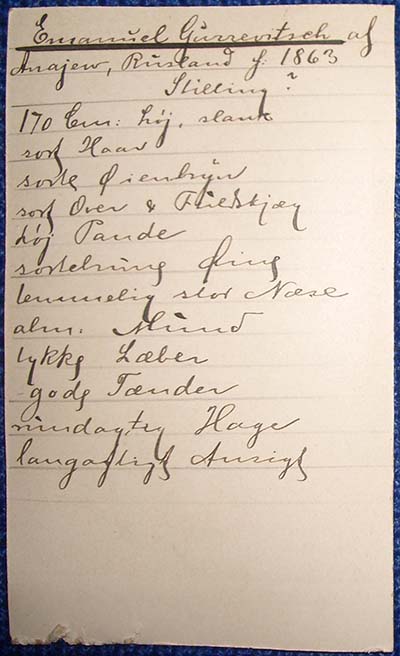 Emanuel Gurrevitsch af
Anajew, Rusland f. 1863
Stilling?
170 Cm: høj, slank
sort Haar
sorte Øienbryn
sort Over & Fuldskjæg
høj Pande
sortebrune Øine
temmelig stor Næse
alm: Mund
tykke Læber
gode Tænder
rundagtig Hage
langagtigt Ansigt